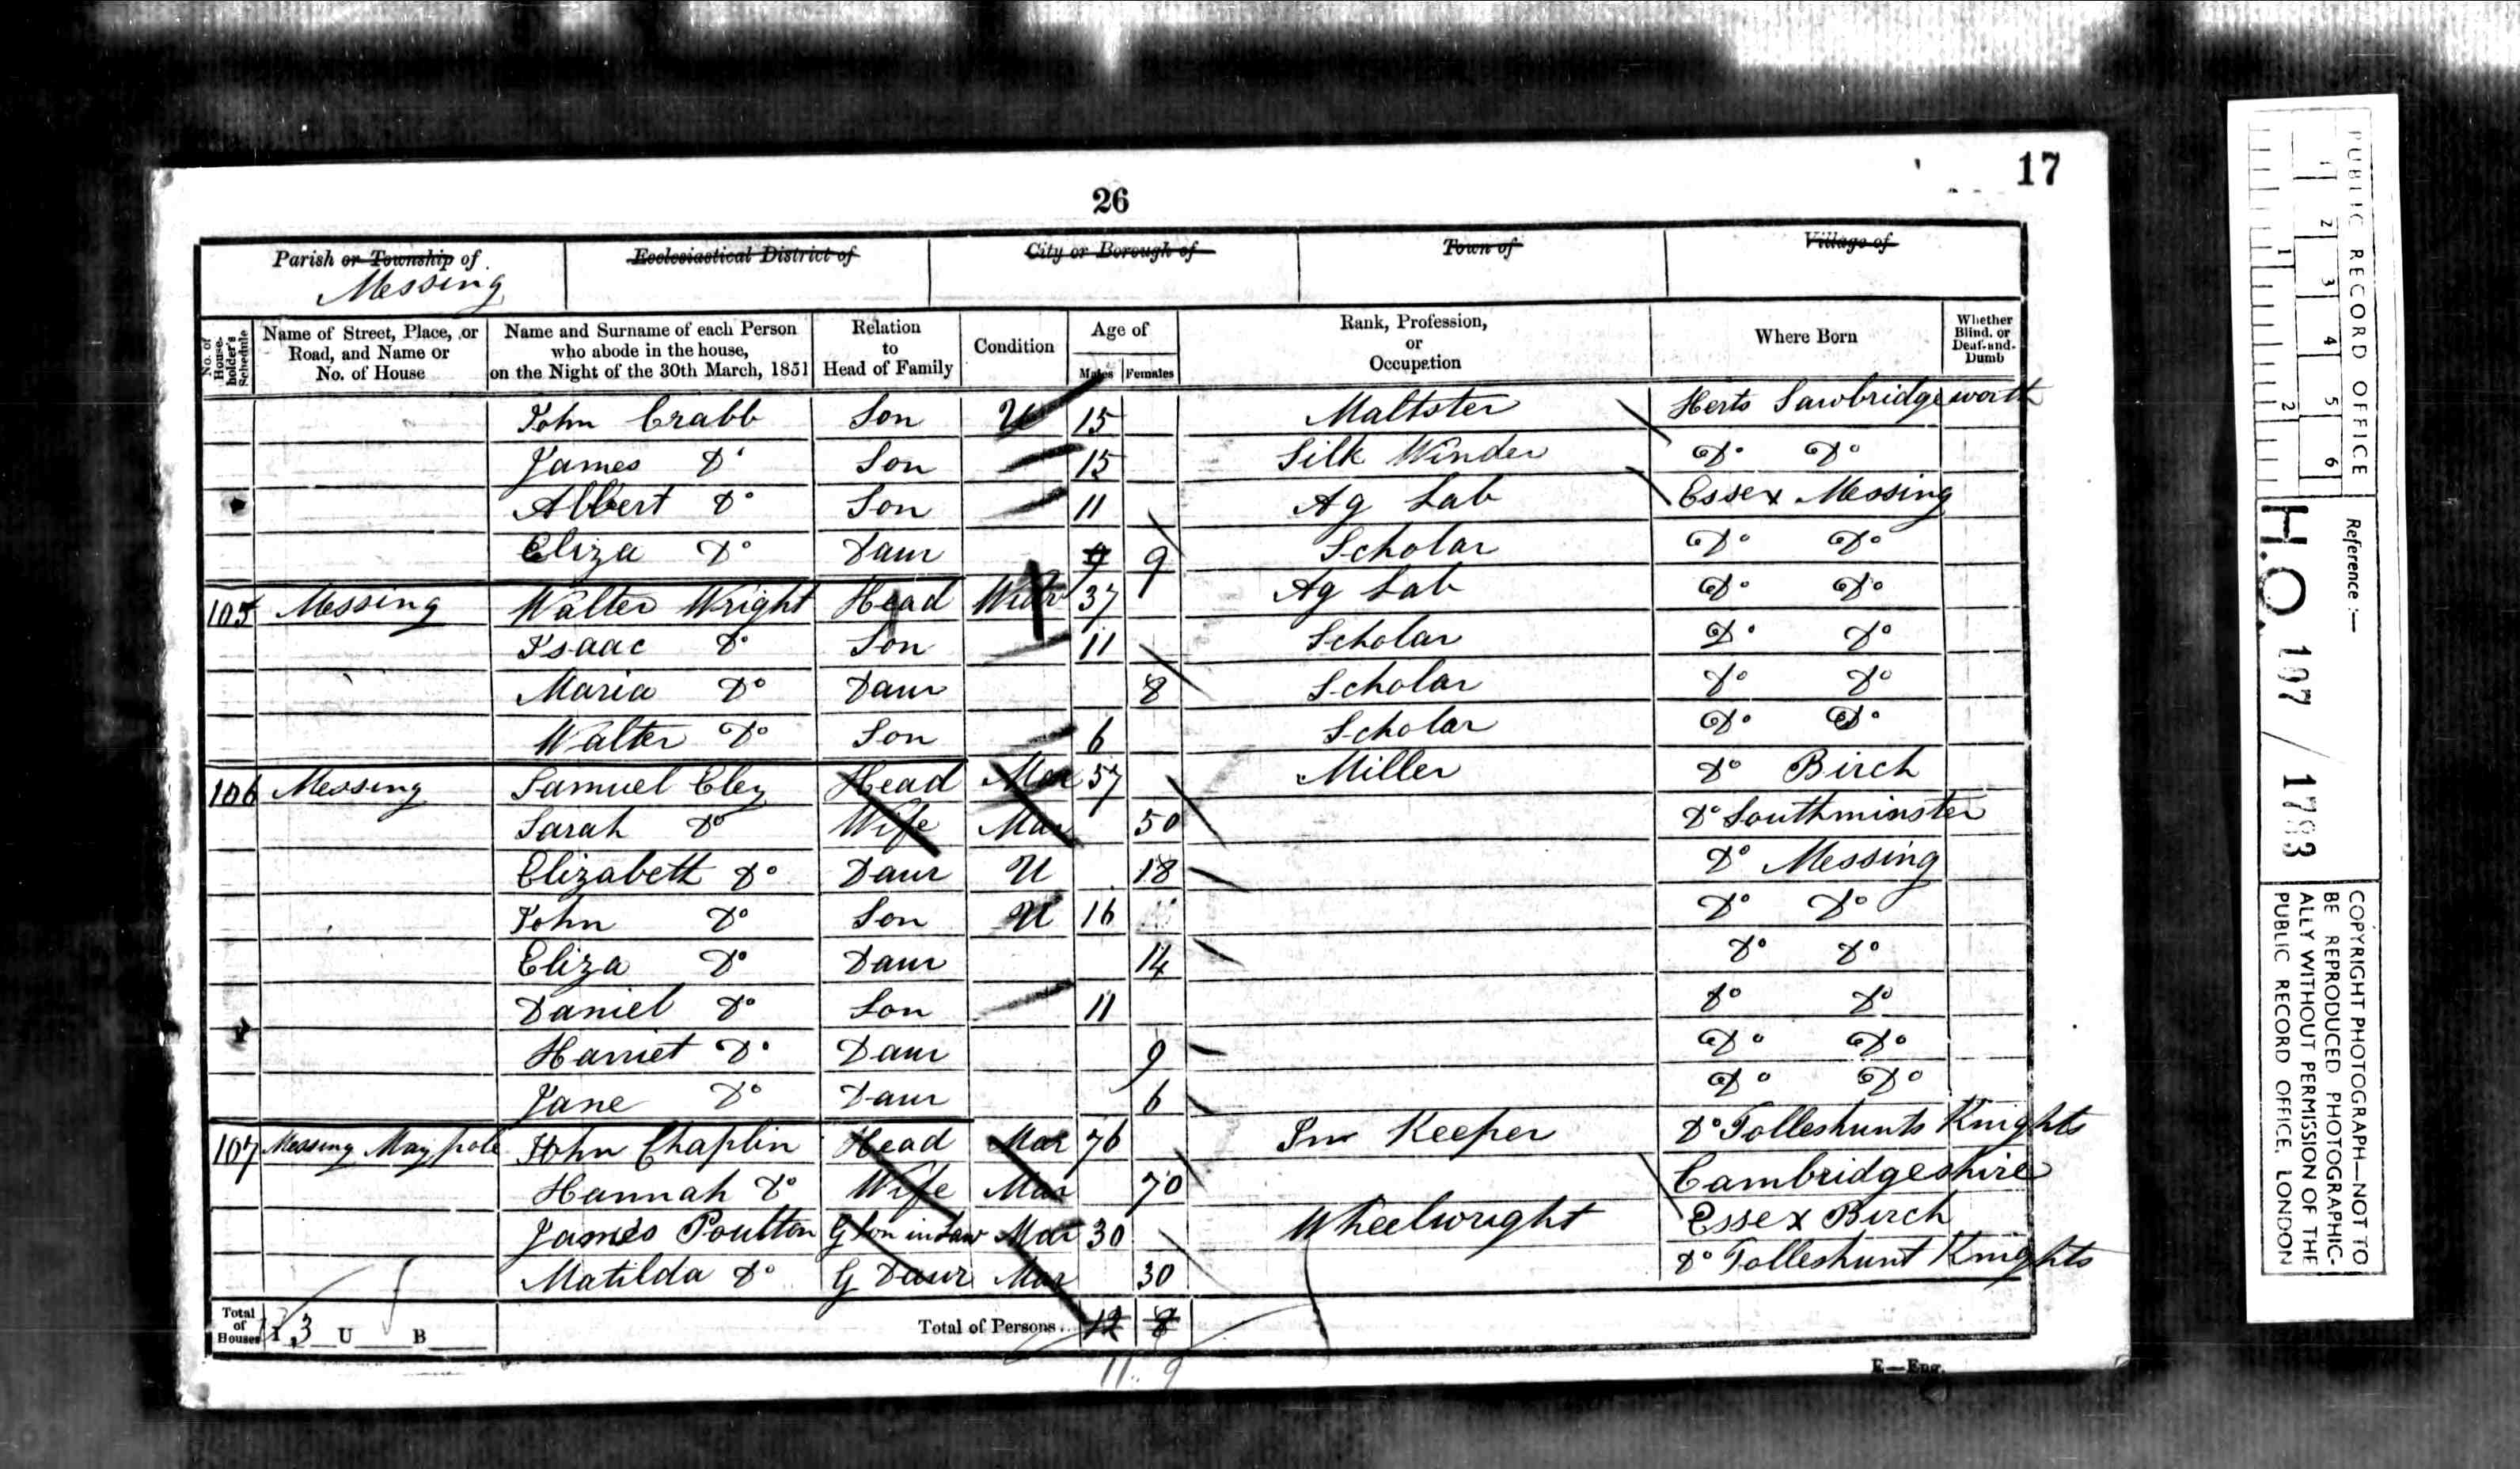 17
26
Parish or Township of Messing | Ecclesiastical District of | City or Borough of | Town of | Village of
No. of House-holder's Schedule | Name of Street, Place, or Road, and Name or No. of House | Name and Surname of each Person who abode in the house, on the Night of the 30th March, 1851 | Relation to Head of Family | Condition | Age of Males Females | Rank, Profession, or Occupation | Where Born | Whether Blind, or Deaf-and-Dumb
John Crabb Son U 15 Maltster Herts Sawbridgeworth
James Do Son 15 Silk Winder Do Do
Albert Do Son 11 Ag Lab Essex Messing
Eliza Do Daur 9 Scholar Do Do
105 Messing Walter Wright Head Widr 37 Ag Lab Do Do
Isaac Do Son 11 Scholar Do Do
Maria Do Daur 8 Scholar Do Do
Walter Do Son 6 Scholar Do Do
106 Messing Samuel Eley Head Mar 57 Miller Do Birch
Sarah Do Wife Mar 50 Do Southminster
Elizabeth Do Daur U 18 Do Messing
John Do Son U 16 Do Do
Eliza Do Daur 14 Do Do
Daniel Do Son 11 Do Do
Harriet Do Daur 9 Do Do
Jane Do Daur 6 Do Do
107 Messing May pole John Chaplin Head Mar 76 Inn Keeper Do Tolleshunts Knights
Hannah Do Wife Mar 70 Cambridgeshire
James Poulton G Son in Law Mar 30 Wheelwright Essex Birch
Matilda Do G Daur Mar 30 Do Tolleshunt Knights
Total of Houses I 3 U B Total of Persons... 12 8
11 9
E—Eng.
PUBLIC RECORD OFFICE
1 2 3 4 5 6
1 2
Reference:—
H.O. 107 / 1783
COPYRIGHT PHOTOGRAPH—NOT TO
BE REPRODUCED PHOTOGRAPHIC-
ALLY WITHOUT PERMISSION OF THE
PUBLIC RECORD OFFICE, LONDON